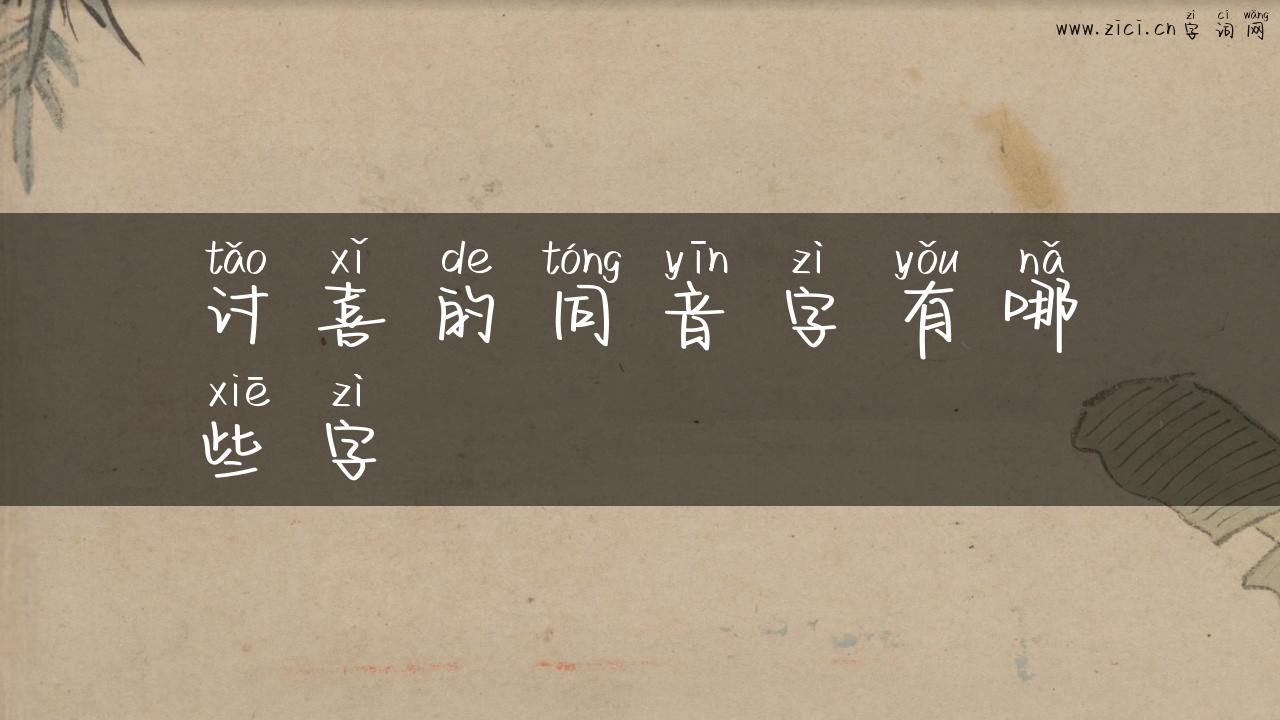 zì cí wǎng
www.zici.cn 字 词 网
tǎo xǐ de tóng yīn zì yǒu nǎ
讨 喜 的 同 音 字 有 哪
xiē zì
些 字